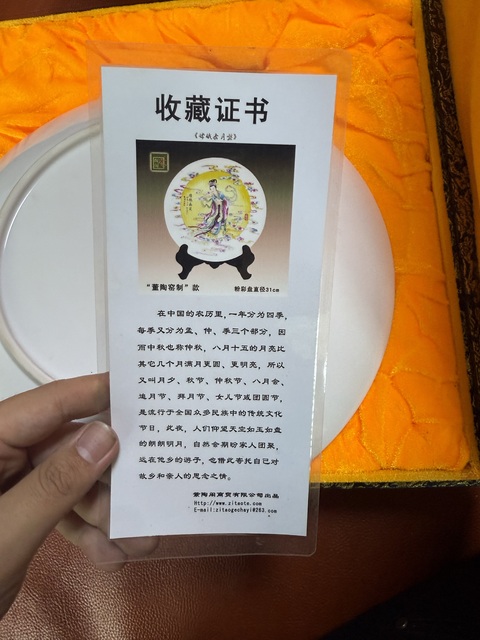 收藏证书
《嫦娥奔月盘》
"董陶窑制"款
粉彩盘直径31cm
在中国的农历里,一年分为四季,
每季又分为孟、仲、季三个部分,因
而中秋也称仲秋,八月十五的月亮比
其它几个月满月更圆、更明亮,所以
又叫月夕、秋节、仲秋节、八月会、
追月节、拜月节、女儿节或团圆节,
是流行于全国众多民族中的传统文化
节日,此夜,人们仰望天空如玉如盘
的朗朗明月,自然会期盼家人团聚,
远在他乡的游子,也借此寄托自己对
故乡和亲人的思念之情。
董陶阁商贸有限公司出品
Http://www.zitaote.com
E-mail:zitaogechayi@263.com